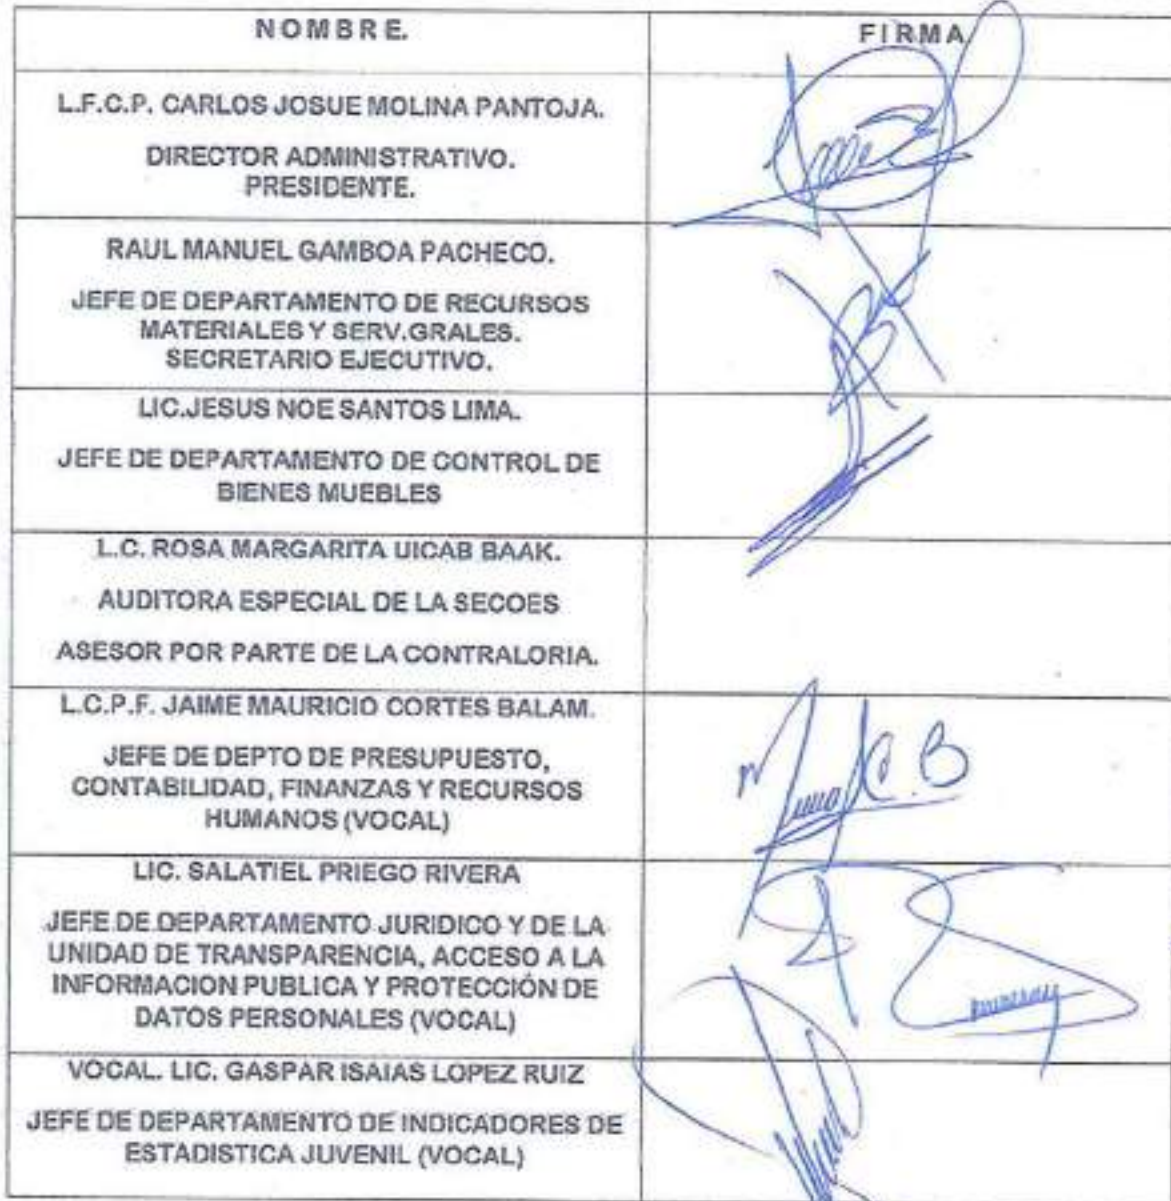 NOMBRE.
FIRMA
L.F.C.P. CARLOS JOSUE MOLINA PANTOJA.
DIRECTOR ADMINISTRATIVO.
PRESIDENTE.
RAUL MANUEL GAMBOA PACHECO.
JEFE DE DEPARTAMENTO DE RECURSOS
MATERIALES Y SERV.GRALES.
SECRETARIO EJECUTIVO.
LIC.JESUS NOE SANTOS LIMA.
JEFE DE DEPARTAMENTO DE CONTROL DE
BIENES MUEBLES
L.C. ROSA MARGARITA UICAB BAAK.
AUDITORA ESPECIAL DE LA SECOES
ASESOR POR PARTE DE LA CONTRALORIA.
L.C.P.F. JAIME MAURICIO CORTES BALAM.
JEFE DE DEPTO DE PRESUPUESTO,
CONTABILIDAD, FINANZAS Y RECURSOS
HUMANOS (VOCAL)
LIC. SALATIEL PRIEGO RIVERA
JEFE DE DEPARTAMENTO JURIDICO Y DE LA
UNIDAD DE TRANSPARENCIA, ACCESO A LA
INFORMACION PUBLICA Y PROTECCIÓN DE
DATOS PERSONALES (VOCAL)
VOCAL. LIC. GASPAR ISAIAS LOPEZ RUIZ
JEFE DE DEPARTAMENTO DE INDICADORES DE
ESTADISTICA JUVENIL (VOCAL)